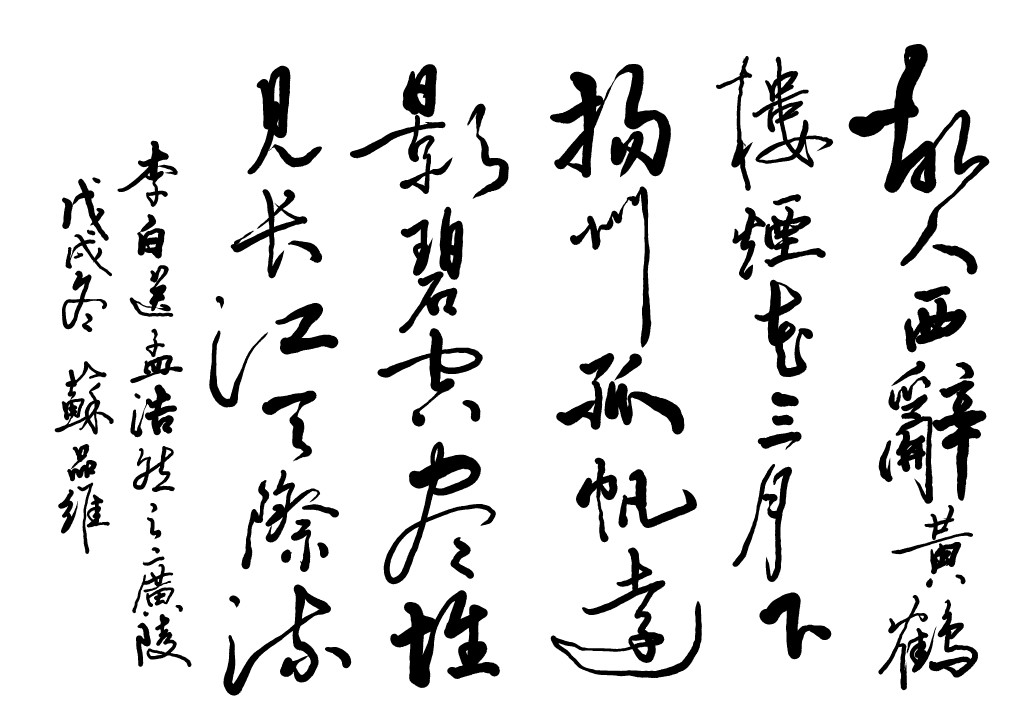 故人西辭黃鶴
樓煙花三月下
揚州孤帆遠
影碧空尽惟
見长江天際流
李白送孟浩然之廣陵
戊戌冬 蘇品維